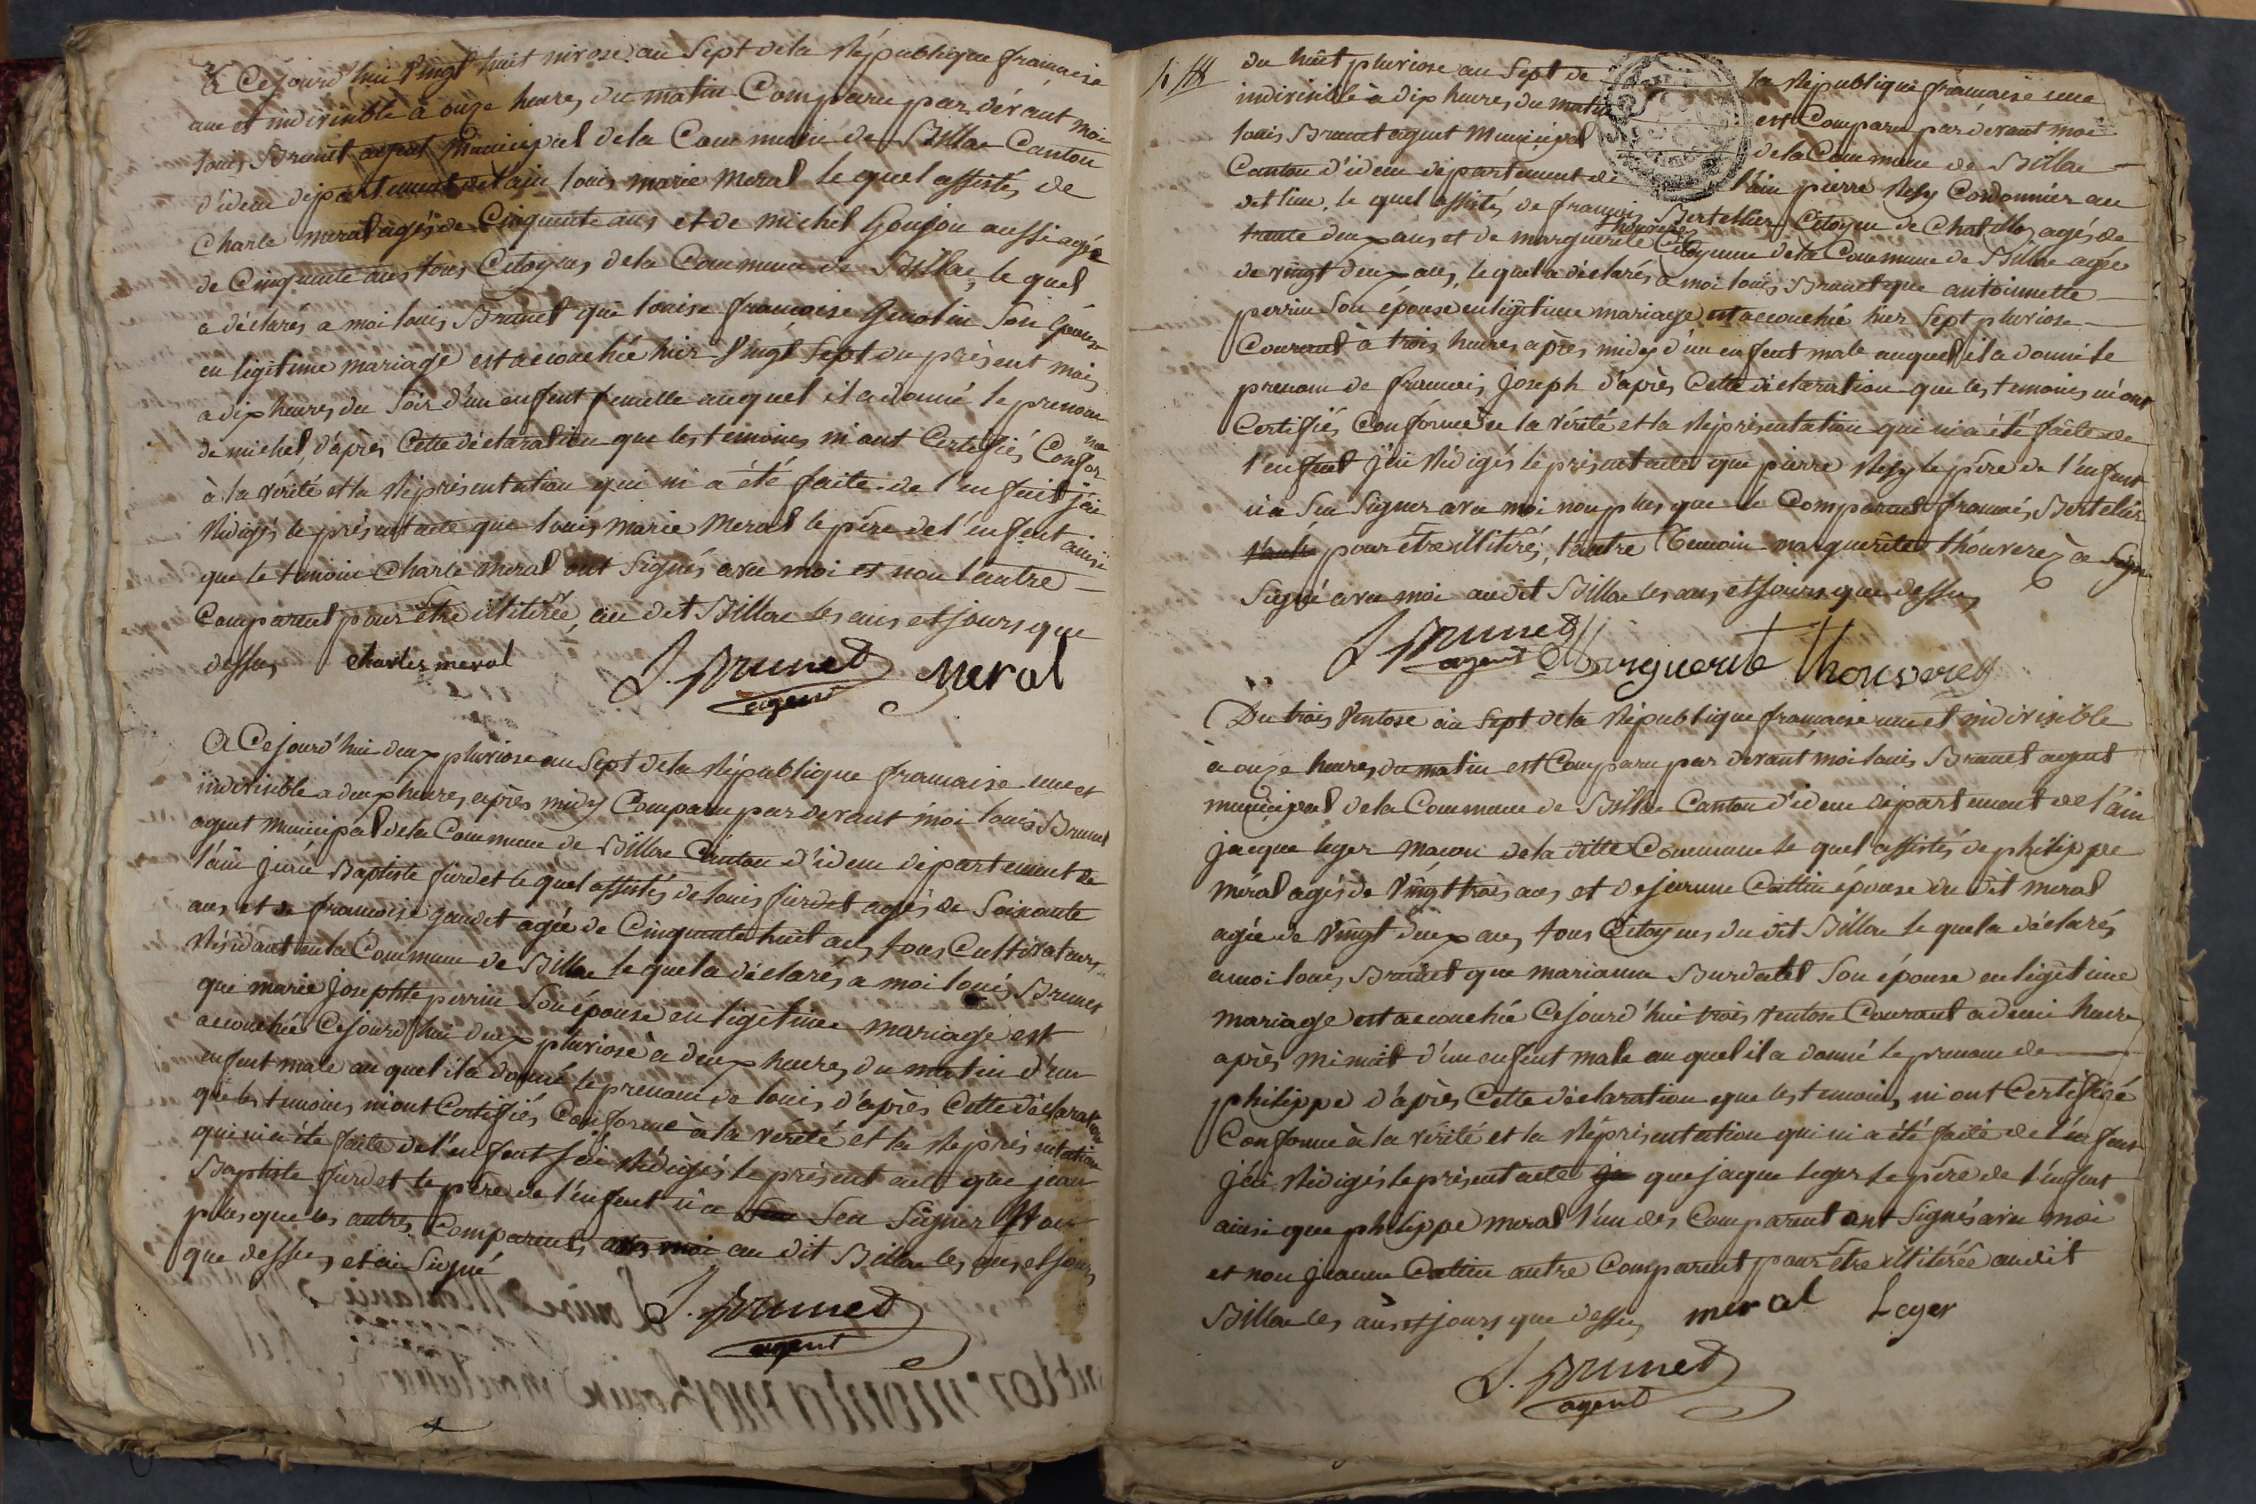 A Cejourd'hui Vingt huit nivose an Sept de la République francaise
une et indivisible à onze heures du matin Comparu par dévant moi
louis Brunet agent Municipal de la Commune de Billac Canton
d'idem département de l'ain louis marie Meral le quel assistés de
Charle meral agés de Cinquante ans et de michel Goujon aussi agée
de Cinquante ans tous Citoyens de la Commune de Billac, le quel
a déclarés a moi louis Brunet que louise francoise son épouse
en legitime mariage est accouchée hier Vingt Sept du présent mois
a dix heures du Soir d'un enfent femelle auquel il a donné le prenom
de michel, d'après Cette déclaration que les temoins m'ont Certifiés Confor me
à la vérité et la Réprésentation qui m'a été faite de l'enfent j'ai
Rédigés le présent acte que louis marie Meral le père de l'enfent ainsi
que le temoin Charle Meral ont Signés avec moi et non l'autre
Comparent pour être illitérée, au dit Billac les ans et jours que
dessus charles meral
J. Brunet Meral
agent
A Cejourd'hui deux pluviose an Sept de la République francaise une et
indivisible a deux heures après midy Comparu par devant moi louis Brunet
agent Municipal de la Commune de Billac Canton d'idem département de
l'ain Baptiste furdet le quel assistés de louis furdet agés de Soixante
ans et de francoise gaudet agée de Cinquante huit ans tous Cultivateurs
Résidant en la Commune de Billac le quel a déclarés a moi louis Brunet
que marie Josephte perrin Son épouse en légitime mariage est
accouchée Cejourd'hui deux pluviose à deux heures du matin d'un
enfent male au quel il a donné le prenom de louis, d'après Cette déclaration
que les temoins m'ont Certifiés Conforme à la verité et la Représentation
qui m'a été faite de l'enfent j'ai Rédigés le présent acte que jean
Baptiste furdet le père de l'enfent n'a Seu Signer Non
plus que les autres Comparents avec moi au dit Billac les ans et jours
que dessus et ai Signé
J. Brunet
agent
du huit pluviose an Sept de la République francaise une
indivisible à dix heures du matin est Comparu par devant moi
louis Brunet agent Municipal de la Commune de Billac
Canton d'idem département de l'ain pierre Rey Cordonnier au
det lieu, le quel assistés de francois Bertellier Citoyen de Chatillo, agés de
trente deux ans et de marguerite thouverez Citoyenne de la Commune de Billac agée
de vingt deux ans, le quel a déclarés a moi louis Brunet que antoinnette
perrin Son épouse en légitime mariage est accouchée hier Sept pluviose
Courant à trois heures après midy d'un enfent male auquel il a donné le
prenom de francois Joseph d'après Cette déclaration que les temoins m'ont
Certifiés Conforme à la vérité et la Réprésentation qui m'a été faite de
l'enfent j'ai Rédigés le présent acte que pierre Rey le père de l'enfent
n'a Seu Signer avec moi non plus que le Comparent francois Bertelier
l'autre pour être illitérés, l'autre Temoin marguerite thouverez a Signe
Signé avec moi au dit Billac les ans et jours que dessus
J. Brunet
agent Marguerite Thouverez
Du trois Ventose an Sept de la République francaise une et indivisible
à onze heures du matin est Comparu par devant moi louis Brunet agent
municipal de la Commune de Billac Canton d'idem département de l'ain
jacque leger macon de la ditte Commune le quel assistés de philippe
méral agés de Vingt trois ans et de jeanne Cattin épouse du dit meral
agée de Vingt deux ans, tous Citoyens du dit Billac le quel a déclarés
a moi louis Brunet que marianne Burdatet Son épouse en légitime
mariage est accouchée Cejourd'hui trois ventose Courant a demi heure
après minuit d'un enfent male au quel il a donné le prenom de
philippe d'après Cette déclaration que les temoins m'ont Certifiée
Conforme à la vérité et la Réprésentation qui m'a été faite de l'enfent
j'ai Rédigés le présent acte je que jaque leger le père de l'enfent
ainsi que philippe meral l'un des Comparent ont Signés avec moi
et non jeanne Cattin autre Comparent pour être illitérée au dit
Billac les ans et jours que dessus meral Leger
J. Brunet
agent